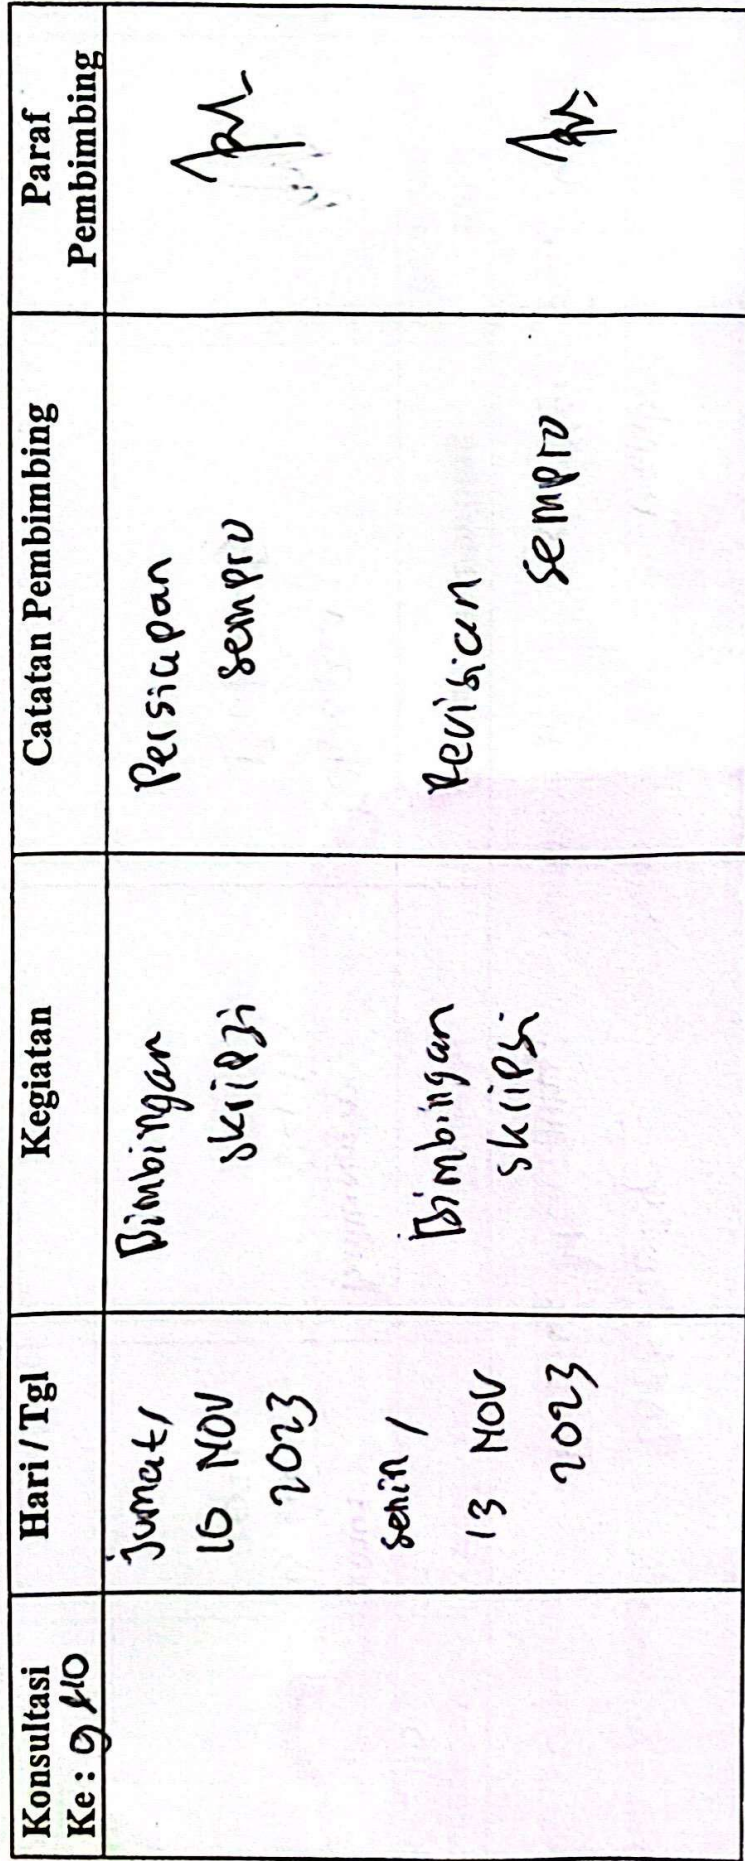 Konsultasi
Ke : 9 & 10
Hari / Tgl
Kegiatan
Catatan Pembimbing
Paraf
Pembimbing
Jumat,
10 Nov
2023
Bimbingan
skripsi
Persiapan
sempro
senin,
13 Nov
2023
Bimbingan
skripsi
Revisian
sempro